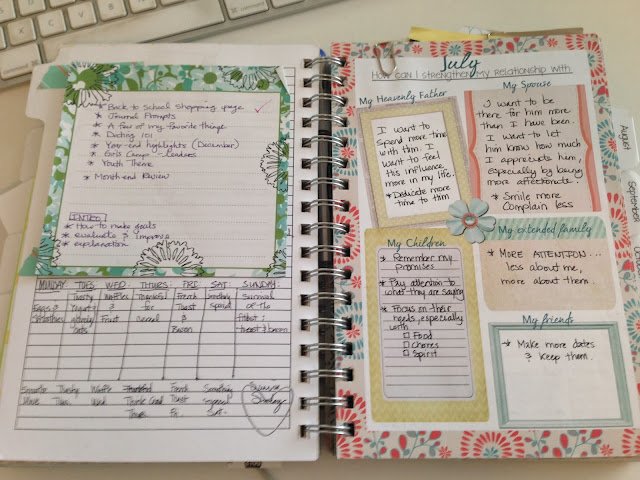 * Back to School Shopping page
* Journal Prompts
* A few of my favorite things
* Dating 101
* Year-end highlights (December)
* Girls Camp - Leaders
* Youth Theme
* Month-end Review
INTRO:
* How to make goals
* evaluate & improve
* explanation
MUNDAY. TUES. WED. THURS. FRI SAT. SUNDAY.
Eggs & Toasty Waffles Thankful French Somebody
Smoothies Yogurty & for Toast Special
Fruit cereal &
Bacon toast & bacon
Toasty Waffle French Something
Tues. Wed Toast Special
Thurs Fri. Sat.
Sunday
July
How can I strengthen my relationship with
My Heavenly Father
I want to
Spend more time
with Him. I
want to feel
His influence
more in my life.
* Dedicate more
time to Him
My Spouse
I want to be
there for him more
than I have been.
I want to let
him know how much
I appreciate him,
especially by being
more affectionate.
* Smile more
Complain less
My Children
* Remember my
promises
* Pay attention to
what they are saying
* Focus on their
needs, especially
with
Food
Chores
Spirit
My extended family
* MORE ATTENTION...
less about me,
more about them.
My friends
* Make more dates
& keep them.
August
September